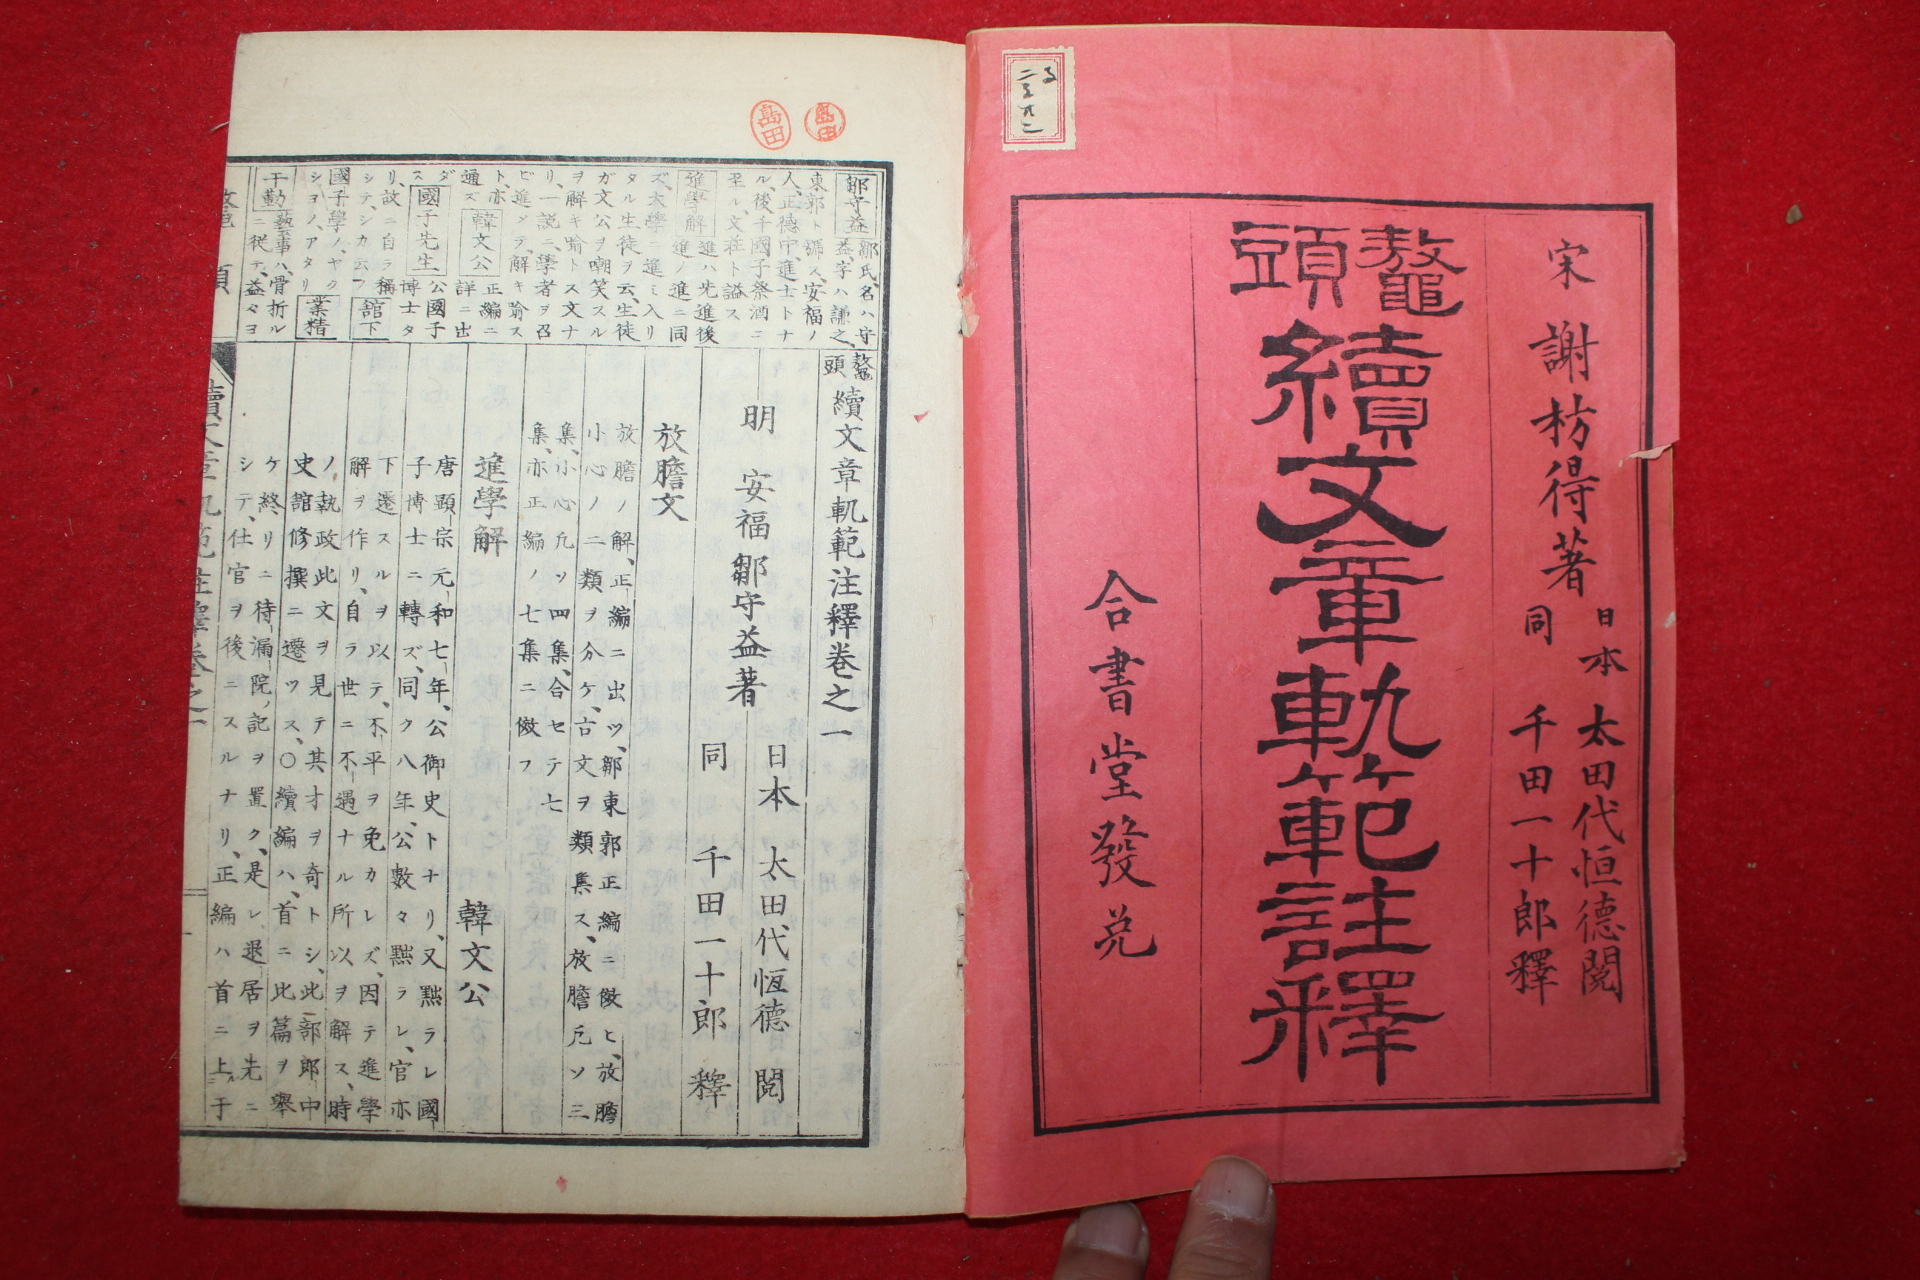 宋 謝枋得著
日本 太田代恒德閱
同 千田一十郎釋
鼇頭續文章軌範註釋
合書堂發兌
島田
島田
鄒守益 鄒氏、名ハ守益、字ハ謙之、
東郭ト號ス、安福ノ
人、正德中、進士トナ
ル、後千國子祭酒ニ
至ル、文莊ト謚ス
進學解 進ハ先進後進ノ進ニ同
ズ、太學ニ進ミ入リ
タル生徒ヲ云、生徒
ガ文公ヲ嘲笑スル
ヲ解キ喩トス文ナ
リ、一說ニ、學者ヲ召
ビ進メテ、解キ喩ス
ト、亦通ズ 韓文公 正編ニ詳ニ出
ダス 國子先生 公國子博士タ
リ、故ニ自ラ稱
シテ、シカ云フ 館下
國子學ノ、ヤク
ショノ、アタリ 業精
于勤 藝事ハ、骨折ルニ從テ、益々ヨ
鼇頭續文章軌範注釋卷之一
明 安福鄒守益著
日本 太田代恆德 閱
同 千田一十郎 釋
放膽文
放膽ノ解、正編ニ出ツ、鄒東郭正編ニ倣ヒ、放膽
小心ノ二類ヲ分ケ、古文ヲ類集ス、放膽凡ソ三
集、小心凡ソ四集、合セテ七
集、亦正編ノ七集ニ倣フ
進學解 韓文公
唐顯宗元和七年、公御史トナリ、又黜ラレ國
子博士ニ轉ズ、同ク八年、公數々黜ラレ、官亦
下遷スルヲ以テ、不平ヲ免カレズ、因テ進學
解ヲ作リ、自ラ世ニ不遇ナル所以ヲ解ス、時
ノ執政此文ヲ見テ其才ヲ奇トシ、此部郎中
史館修撰ニ遷ツス、○續編ハ、首ニ此篇ヲ舉
ケ終リニ待漏院記ヲ置ク、是レ退居ヲ先ニ
シテ、仕官ヲ後ニスルナリ、正編ハ首ニ上于